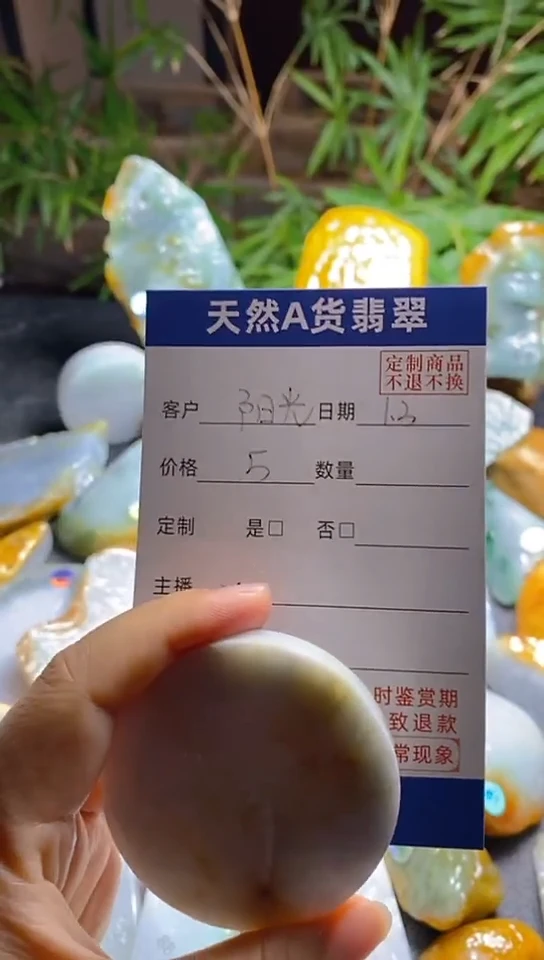 天然A货翡翠
定制商品
不退不换
客户 阳光 日期 1.2
价格 5 数量
定制 是□ 否□
主播
时鉴赏期
致退款
常现象